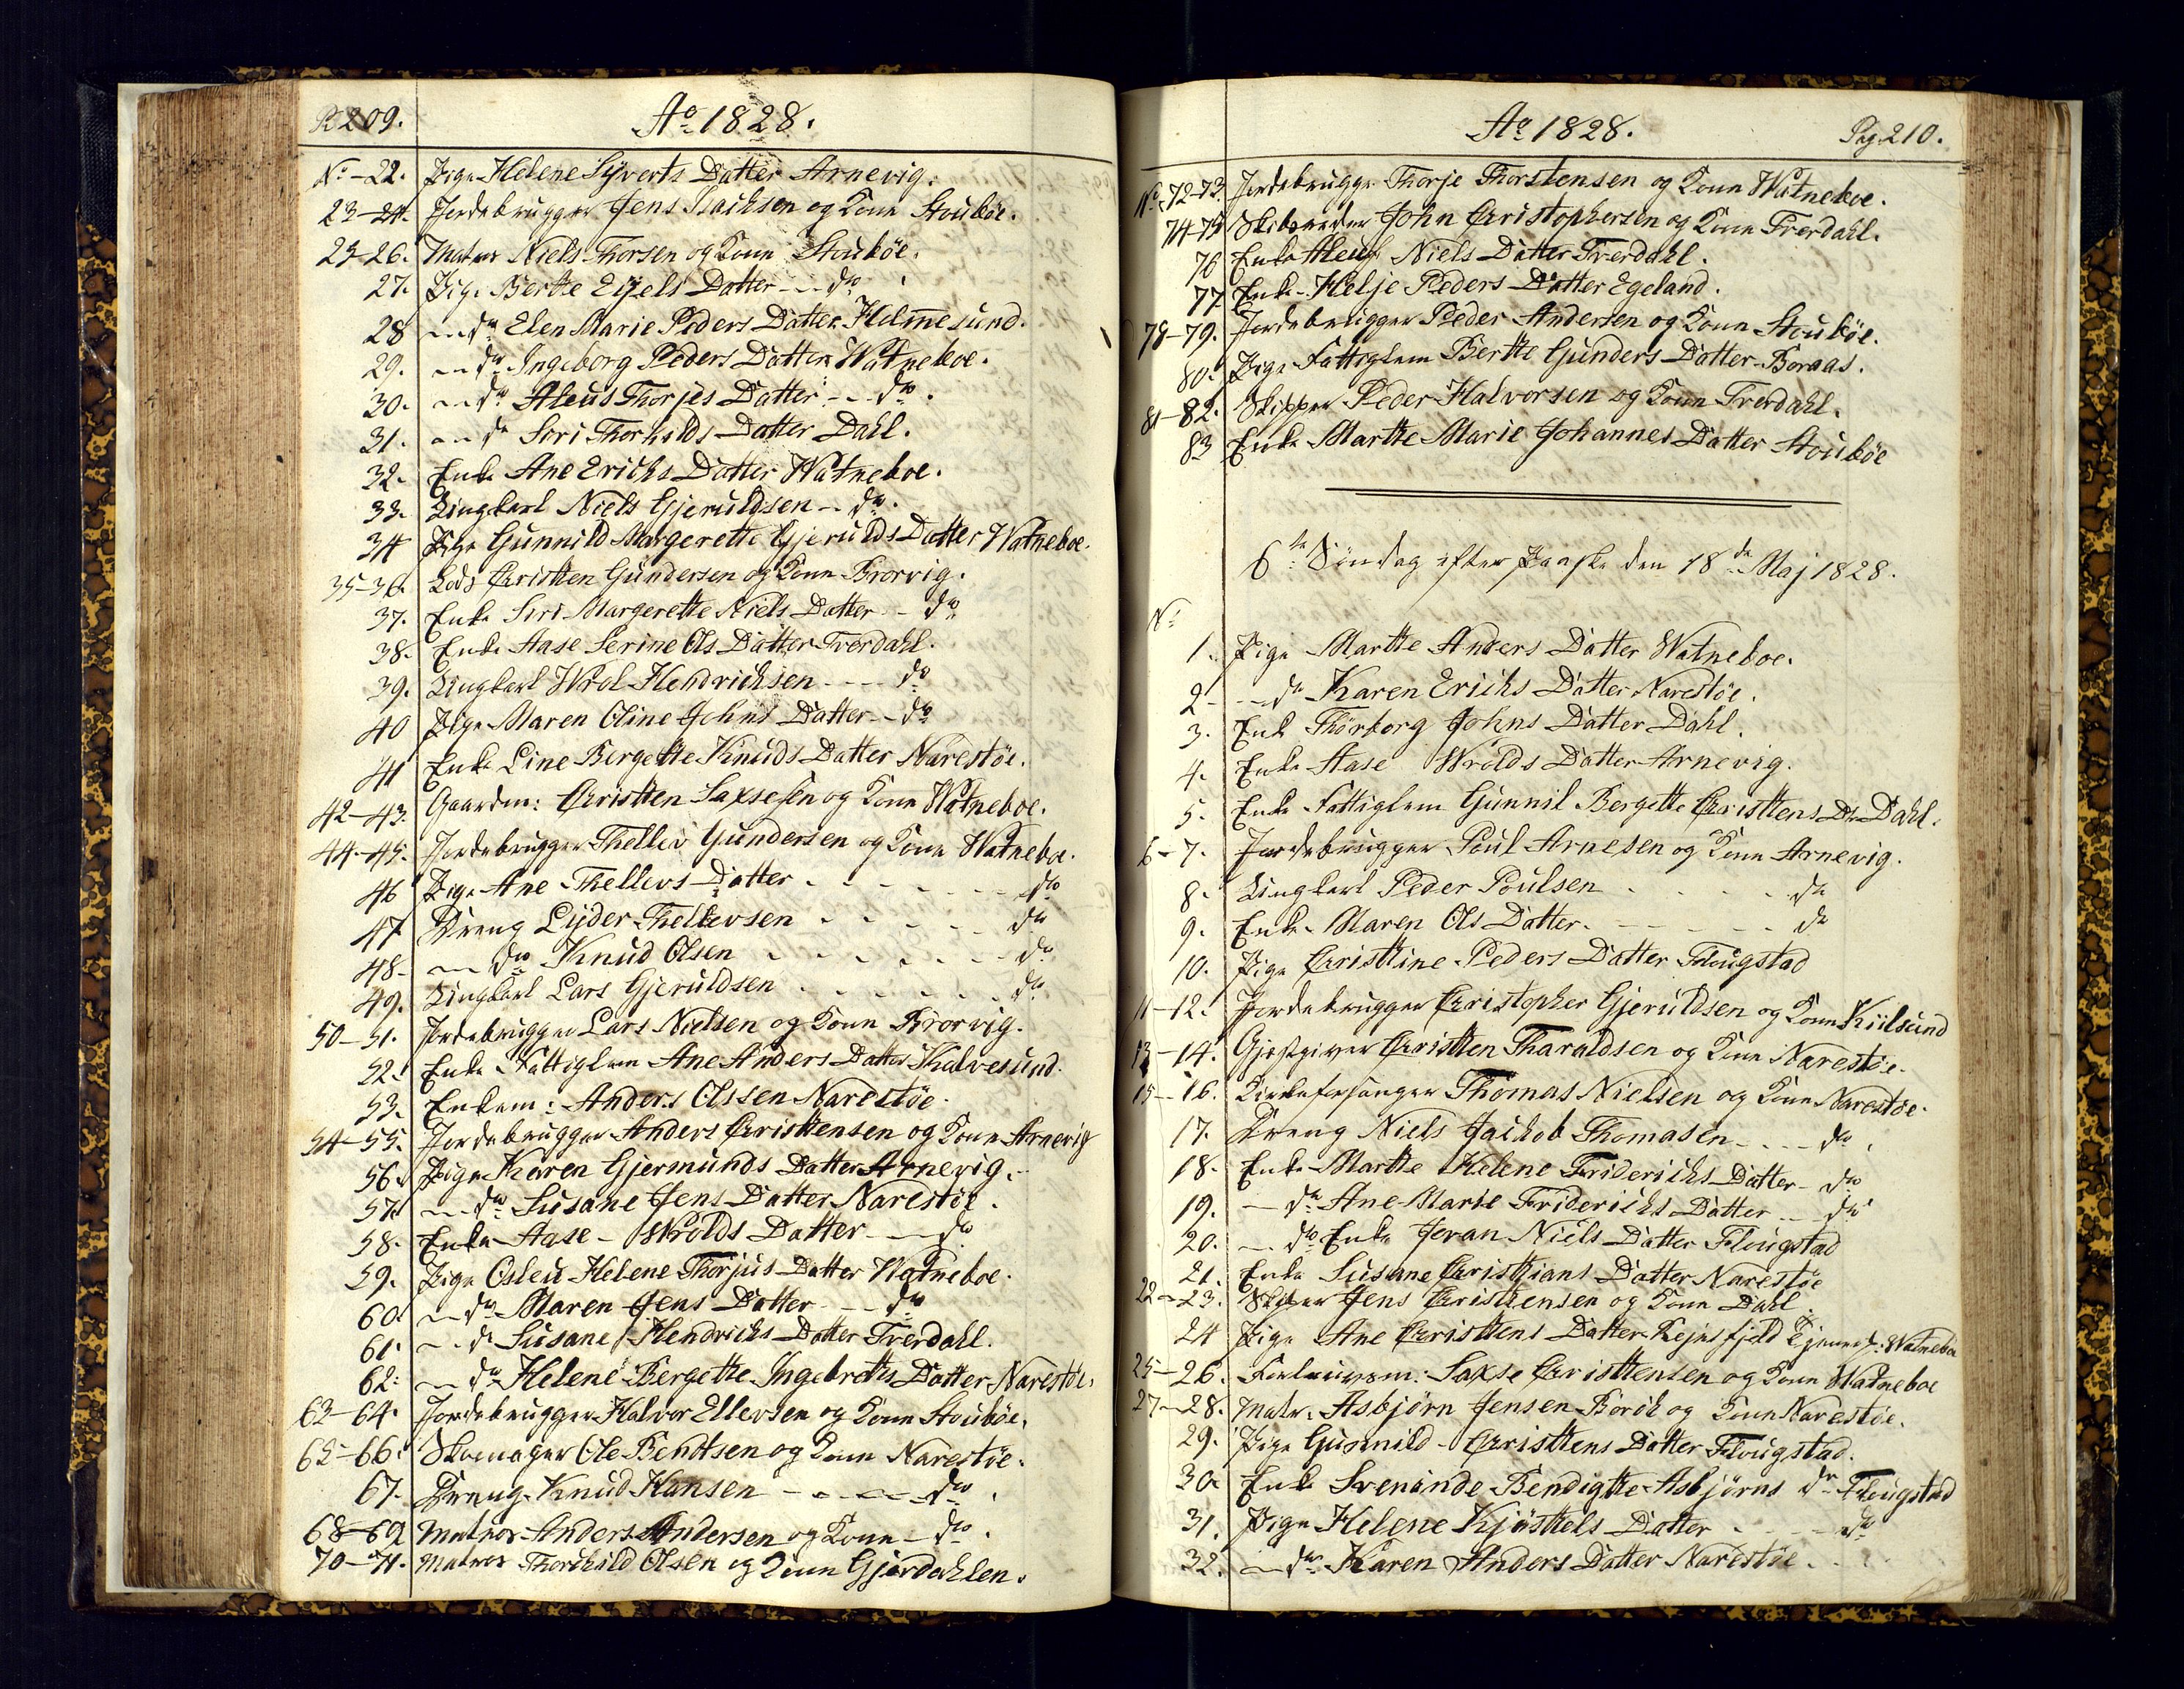 P. 209.
Ao 1828.
No - 22. Pige Helene Syverts Datter Arnevig.
23-24. Jordebrugger Jens Isachsen og Kone Stoubøe.
25-26. Matros Niels Thorsen og Kone Stoubøe.
27. Pige Berthe Eyels Datter - - do
28 - do Elen Marie Peders Datter Helmesund.
29. - do Ingeborg Peders Datter Watneboe.
30. - do Aleus Thorjes Datter - - do.
31. - do Siri Thorkilds Datter Dahl.
32. Enke Ane Erichs Datter Watneboe.
33. Ungkarl Niels Gjeruldsen - - do.
34 Pige Gunnild Margerette Gjerulds Datter Watneboe.
35-36. Lods Christen Gundersen og Kone Brorvig.
37. Enke Siri Margerette Niels Datter - do
38. Enke Aase Serine Ols Datter Tverdahl.
39. Ungkarl Wrol Hendrichsen - - - do
40 Pige Maren Oline Johns Datter - - do
41 Enke Line Bergette Knuds Datter Narestøe.
42-43. Gaardm: Christen Saxsesen og Kone Watneboe.
44-45. Jordebrugger Thellev Gundersen og Kone Watneboe.
46 Pige Ane Thellevs Datter - - - - - do
47 Dreng Lyder Thellevsen - - - - - do
48. - do Knud Olsen - - - - - do
49. Ungkarl Lars Gjeruldsen - - - - - do
50-51. Jordebrugger Lars Nielsen og Kone Brorvig.
52. Enke Fattiglem Ane Anders Datter Kalvesund.
53. Enkem: Anders Olssen Narestøe.
54-55. Jordebrugger Anders Christensen og Kone Arnevig
56. Pige Karen Gjermunds Datter Arnevig.
57. - do Susane Jens Datter Narestøe.
58. Enke Aase Wrolds Datter - - do
59. Pige Osleu Helene Thorjus Datter Watneboe.
60. - do Maren Jens Datter - - do
61. - do Susane Hendrichs Datter Tverdahl.
62. - do Helene Bergethe Ingebreths Datter Narestøe.
63-64. Jordebrugger Halvor Ellevsen og Kone Stoubøe.
65-66. Skomager Ole Bendtsen og Kone Narestøe.
67. Dreng Knud Hansen - - - - do.
68-69 Matros Anders Andersen og Kone - do.
70-71. Matros Thorkild Olsen og Kone Gjerdahlen.
Ao 1828.
Pag. 210.
No 72-73. Jordebrugger Thorje Thorstensen og Kone Watneboe.
74-75 John Christophersen og Kone Tverdahl.
76 Enke Aleus Niels Datter Tverdahl.
77 Enke Helje Peders Datter Egeland.
78-79. Jordebrugger Peder Andersen og Kone Stoubøe.
80. Pige Fattiglem Berthe Gunders Datter Boraas.
81-82. Skipper Peder Halvorsen og Kone Tverdahl.
83 Enke Marthe Marie Johannes Datter Stoubøe
6te Søndag efter Paaske den 18de Maj 1828.
No
1. Pige Marthe Anders Datter Watneboe.
2 - do Karen Erichs Datter Narestøe.
3. Enke Thorborg Johns Datter Dahl.
4. Enke Aase Wrolds Datter Arnevig.
5. Enke Fattiglem Gunnil Bergette Christens Dr Dahl.
6-7. Jordebrugger Poul Arnesen og Kone Arnevig.
8. Ungkarl Peder Poulsen - - - - do
9. Enke Maren Ols Datter - - - - do
10. Pige Christine Peders Datter Flougstad
11-12. Jordebrugger Christopher Gjeruldsen og Kone Kiilsund
13-14. Gjestgiver Christen Tharaldsen og Kone Narestøe.
15-16. Kirkesanger Thomas Nielsen og Kone Narestøe.
17. Dreng Niels Jachob Thomasen - - - do.
18. Enke Marthe Helene Friderichs Datter - do
19. - do Ane Marie Friderichs Datter - - do
20. - do Enke Joran Niels Datter Flougstad
21. Enke Susane Christians Datter Narestøe
22-23. Skipper Jens Christensen og Kone Dahl.
24 Pige Ane Christens Datter Rejnsfjeld Watneboe
25-26. Saxse Christensen og Kone Watneboe
27-28. Matr. Asbjørn Jensen Borøe og Kone Narestøe.
29. Pige Gunnild Christens Datter Flougstad.
30 Enke Sveninde Bendigtte Asbjørns dr Flougstad
31. Pige Helene Kjøstels Datter - - - do
32. - do Karen Anders Datter Narestøe.